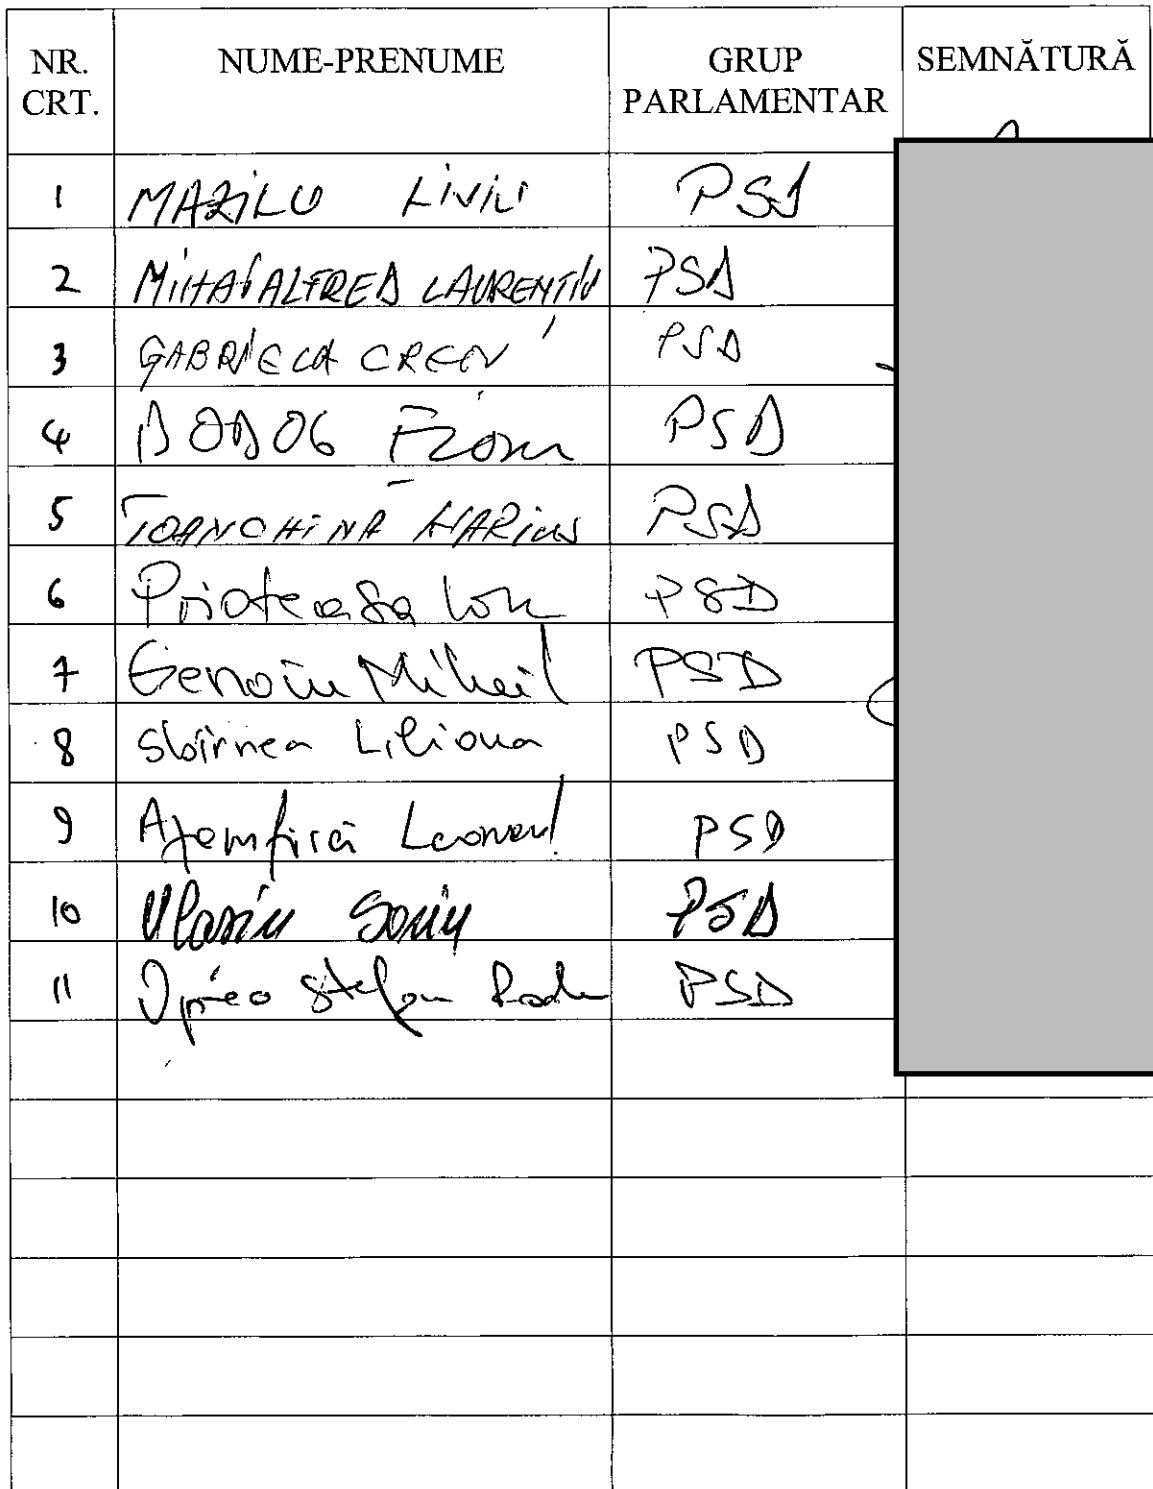 NR. CRT. NUME-PRENUME GRUP PARLAMENTAR SEMNĂTURĂ
1 MAZILU LIVIU PSD
2 MIHAI ALFRED LAURENȚIU PSD
3 GABRIELA CREȚU PSD
4 BODOG Florian PSD
5 TOANCHINĂ MARIUS PSD
6 Prioteasa Ion PSD
7 Genoiu Mihail PSD
8 Sbîrnea Liliana PSD
9 Azamfirei Leonard PSD
10 Vlașin Sorin PSD
11 Oprea Ștefan Radu PSD